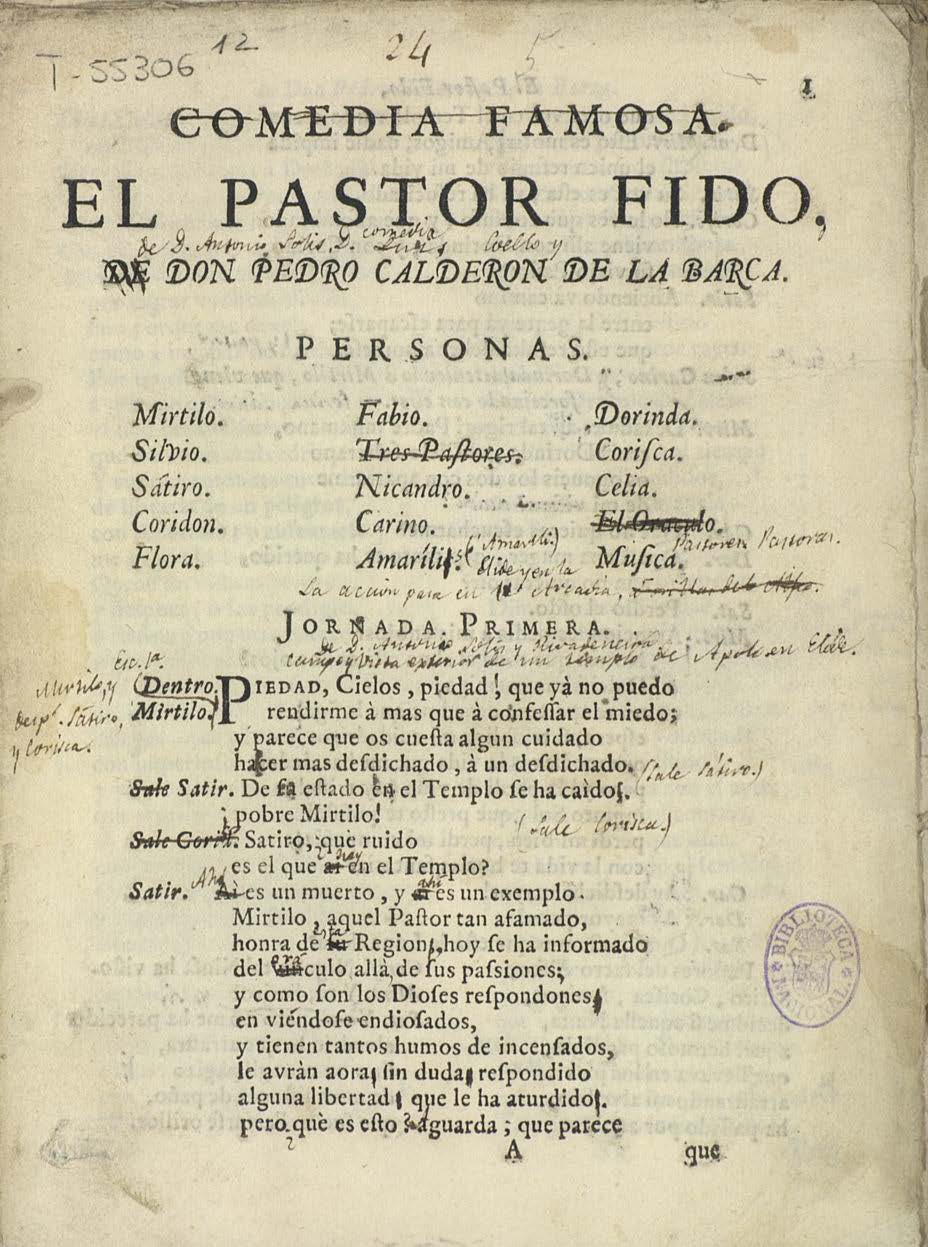 T-55306 12 24 5
1
COMEDIA FAMOSA.
EL PASTOR FIDO,
de D. Antonio Solis, D. Coello y
comedia
DE DON PEDRO CALDERON DE LA BARCA.
PERSONAS.
Mirtilo. Fabio. Dorinda.
Silvio. Tres Paſtores. Coriſca.
Sátiro. Nicandro. Celia.
Coridon. Carino. El Oraculo.
Flora. Amarílis. (Amarili) Muſica. Pastores Pastoras.
La accion pasa en Elide y en la Arcadia,
JORNADA PRIMERA.
de D. Antonio Solis y
campo y vista exterior de un templo de Apolo en Elide.
Esc. 1ª.
Mirtilo, y
Sátiro,
y Corisca.
Dentro. PIEDAD, Cielos, piedad! que yà no puedo
Mirtilo. rendirme à mas que à confeſſar el miedo;
y parece que os cueſta algun cuidado
hacer mas deſdichado, à un deſdichado. (Sale Sátiro.)
Sale Satir. De ſu eſtado en el Templo ſe ha caìdo,
¡pobre Mirtilo!
Sale Corisc. Satiro, què ruido (Sale Corisca.)
es el que hay en el Templo?
Satir. Ahí es un muerto, y ahí es un exemplo.
Mirtilo, aquel Paſtor tan afamado,
honra de ſu Region, hoy ſe ha informado
del Oráculo allà, de ſus paſsiones;
y como ſon los Dioſes reſpondones,
en viéndoſe endioſados,
y tienen tantos humos de incenſados,
le avràn aora, ſin duda, reſpondido
alguna libertad, que le ha aturdido.
pero què es eſto? aguarda; que parece
A que
BIBLIOTECA NACIONAL